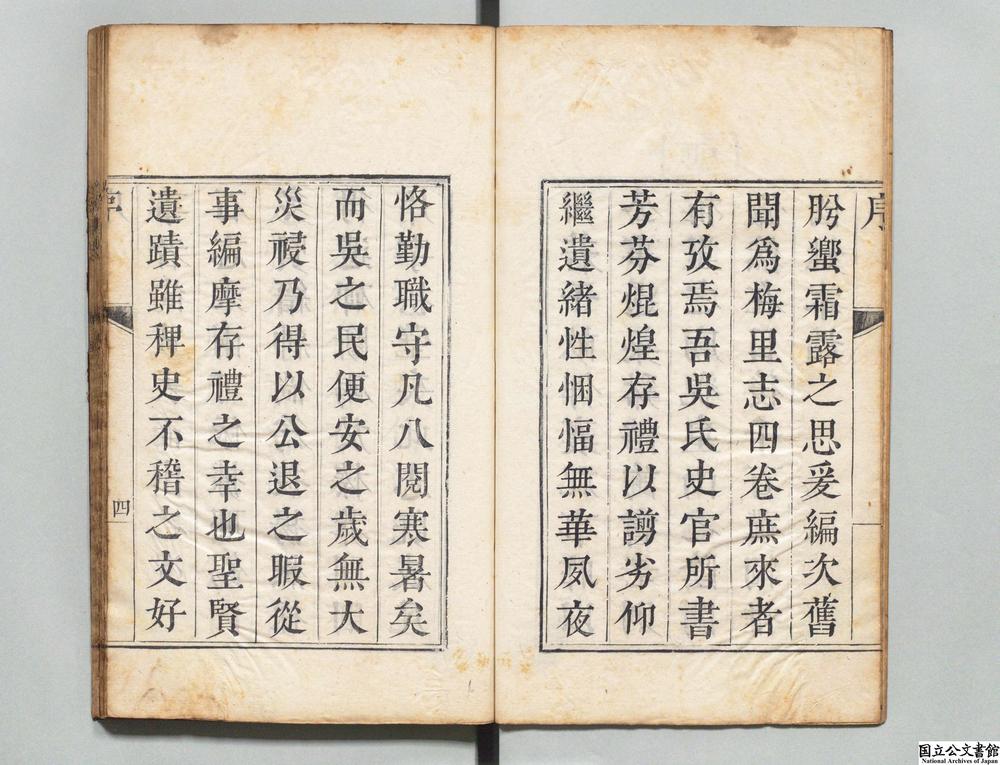 序
肸蠁霜露之思爰編次舊
聞爲梅里志四卷庶來者
有攷焉吾吳氏史官所書
芳芬焜煌存禮以譾劣仰
繼遺緒性悃愊無華夙夜
恪勤職守凡八閱寒暑矣
而吳之民便安之歲無大
災祲乃得以公退之暇從
事編摩存禮之幸也聖賢
遺蹟雖稗史不稽之文好
序
四
国立公文書館
National Archives of Japan